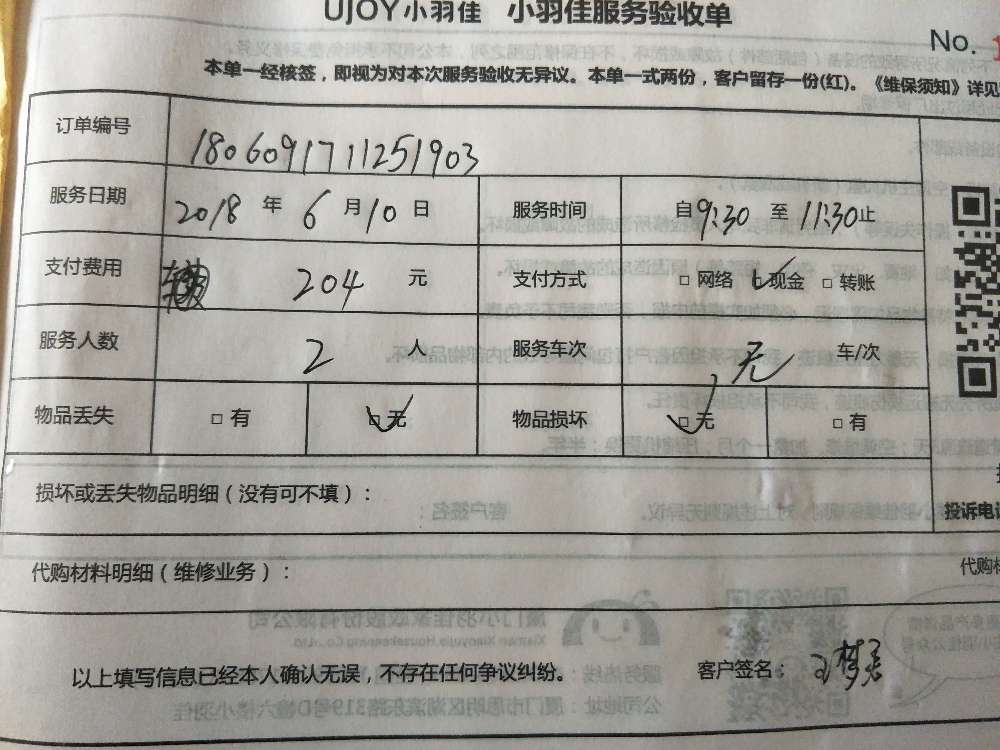 UJOY小羽佳 小羽佳服务验收单
No.
本单一经核签，即视为对本次服务验收无异议。本单一式两份，客户留存一份(红)。《维保须知》详见
订单编号 1806091711251903
服务日期 2018 年 6 月 10 日 服务时间 自 9:30 至 11:30 止
支付费用 204 元 支付方式 □ 网络 □ 现金 □ 转账
服务人数 2 人 服务车次 无 车/次
物品丢失 □ 有 □ 无 物品损坏 □ 无 □ 有
损坏或丢失物品明细（没有可不填）：
投诉电
代购材料明细（维修业务）：
代购
以上填写信息已经本人确认无误，不存在任何争议纠纷。 客户签名：